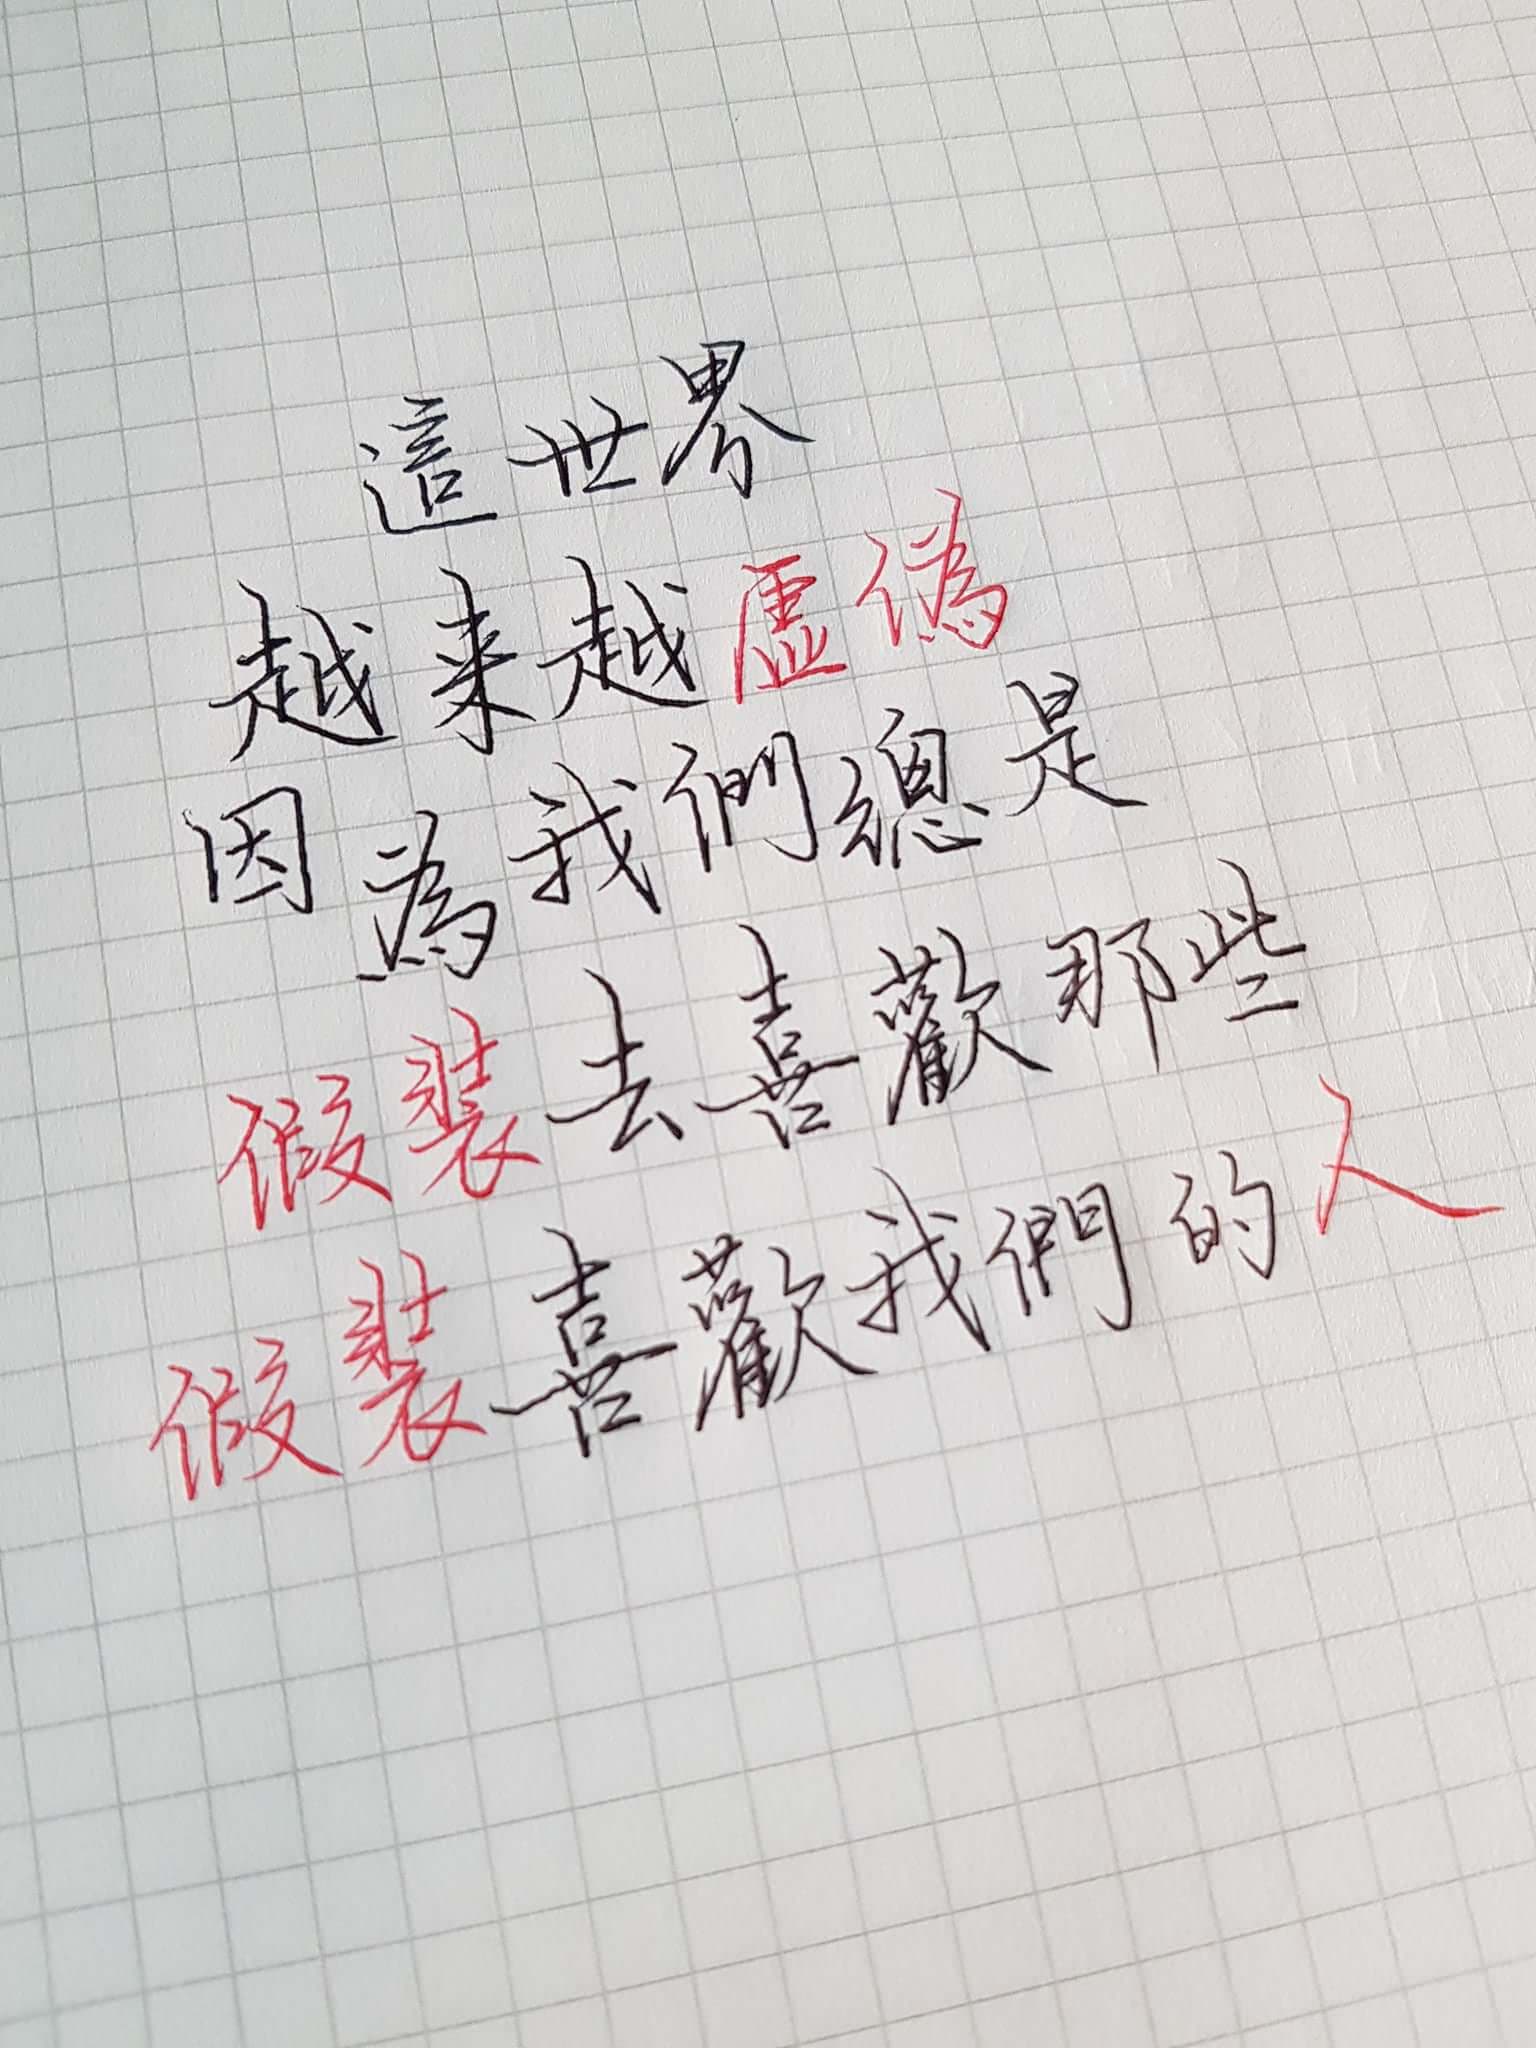 這世界
越來越虛偽
因為我們總是
假裝去喜歡那些
假裝喜歡我們的人